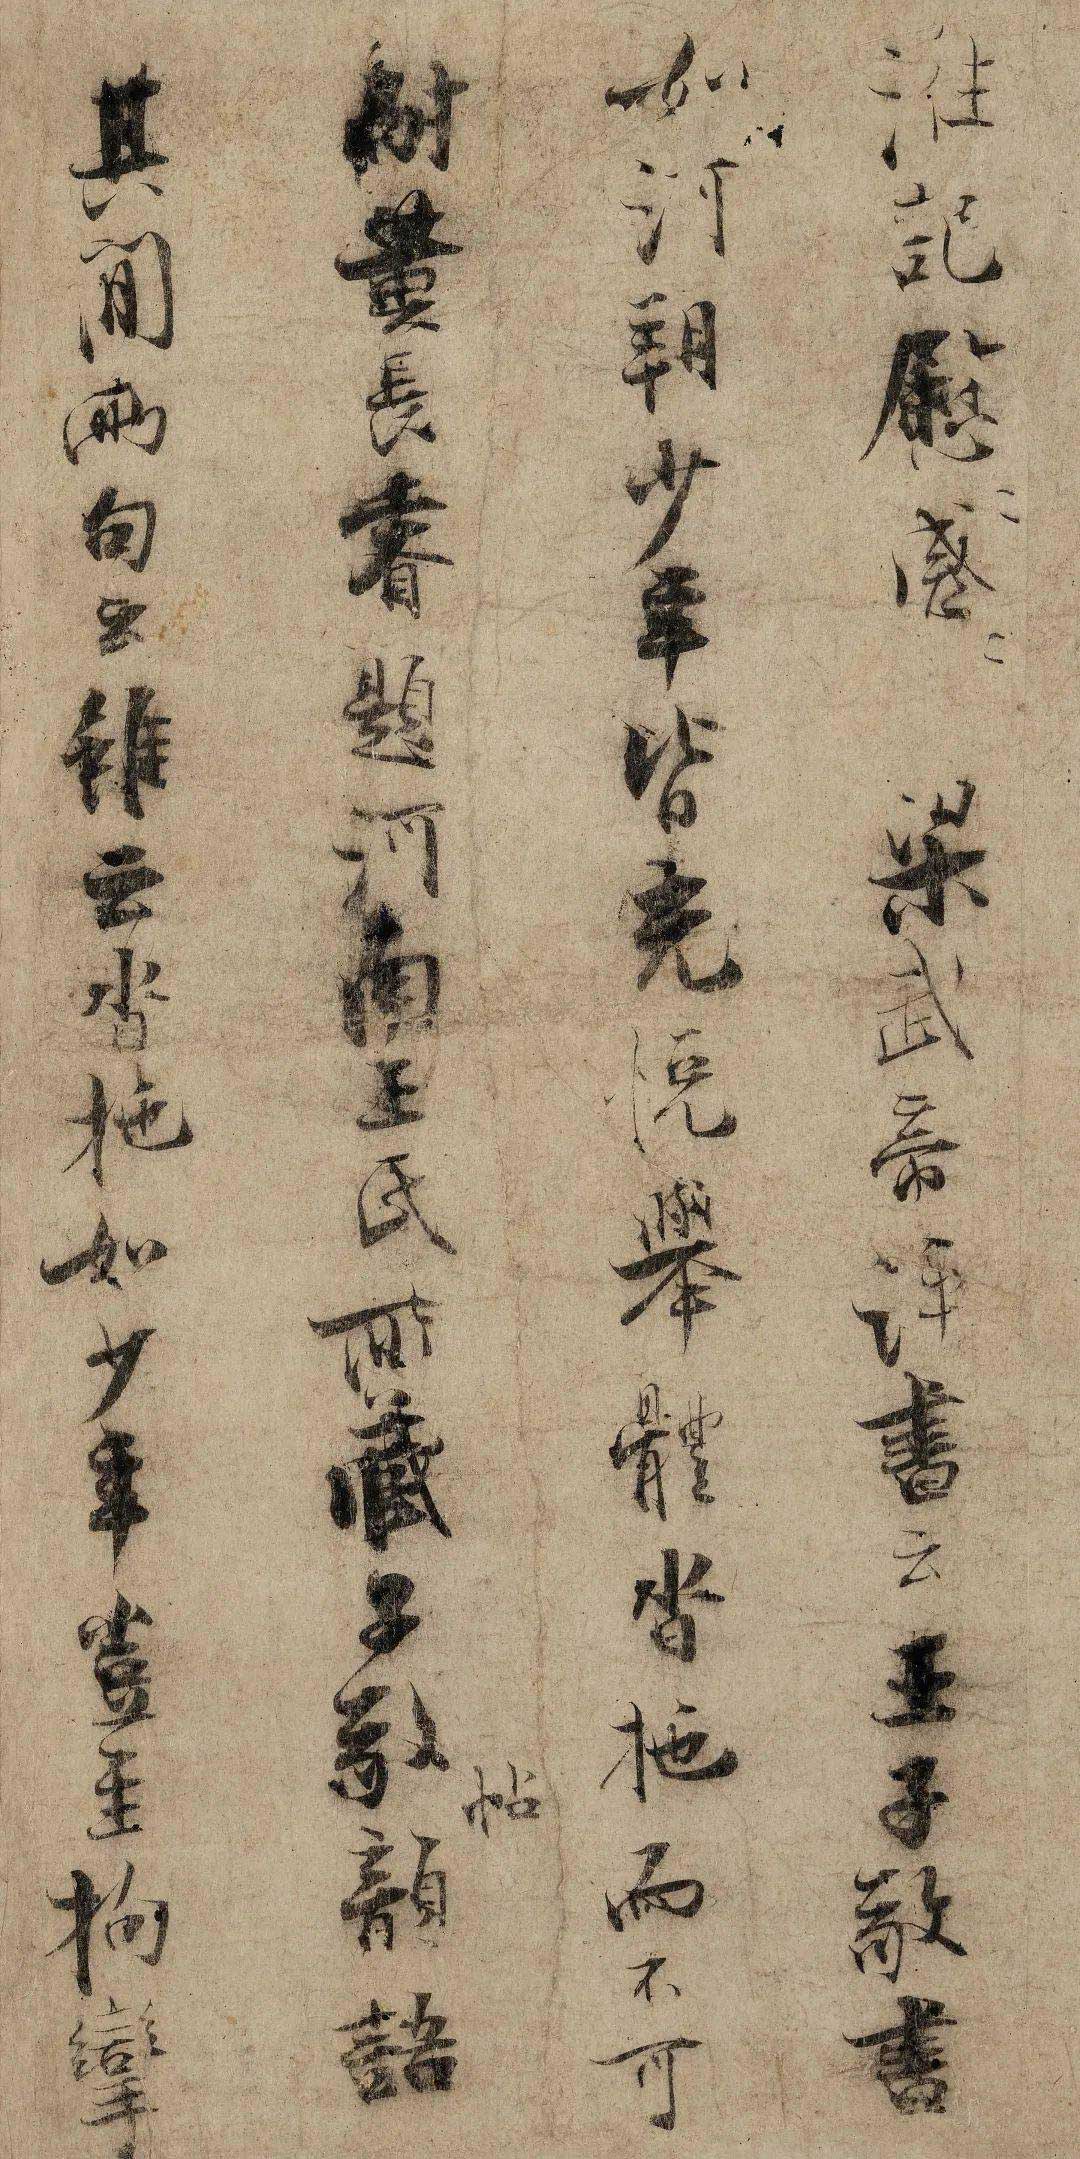 注記慰〻感〻 梁武帝評書云王子敬書
如河朔少年皆充悅舉體沓拖而不可
耐黃長睿題河南王氏所藏子敬帖韻語
其間兩句云雖云沓拖如少年豈至拘攣